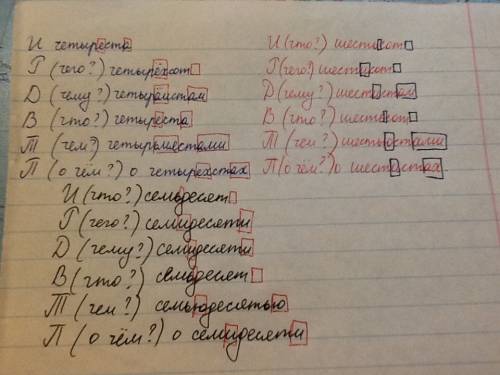 И четыреста
Г (чего?) четырёхсот
Д (чему?) четырёмстам
В (что?) четыреста
Т (чем?) четырьместами
П (о чём?) о четырёхстах
И (что?) шестьсот
Г (чего?) шестисот
Д (чему?) шестистам
В (что?) шестьсот
Т (чем?) шестьюстами
П (о чём?) о шестистах
И (что?) семьдесят
Г (чего?) семидесяти
Д (чему?) семидесяти
В (что?) семьдесят
Т (чем?) семьюдесятью
П (о чём?) о семидесяти